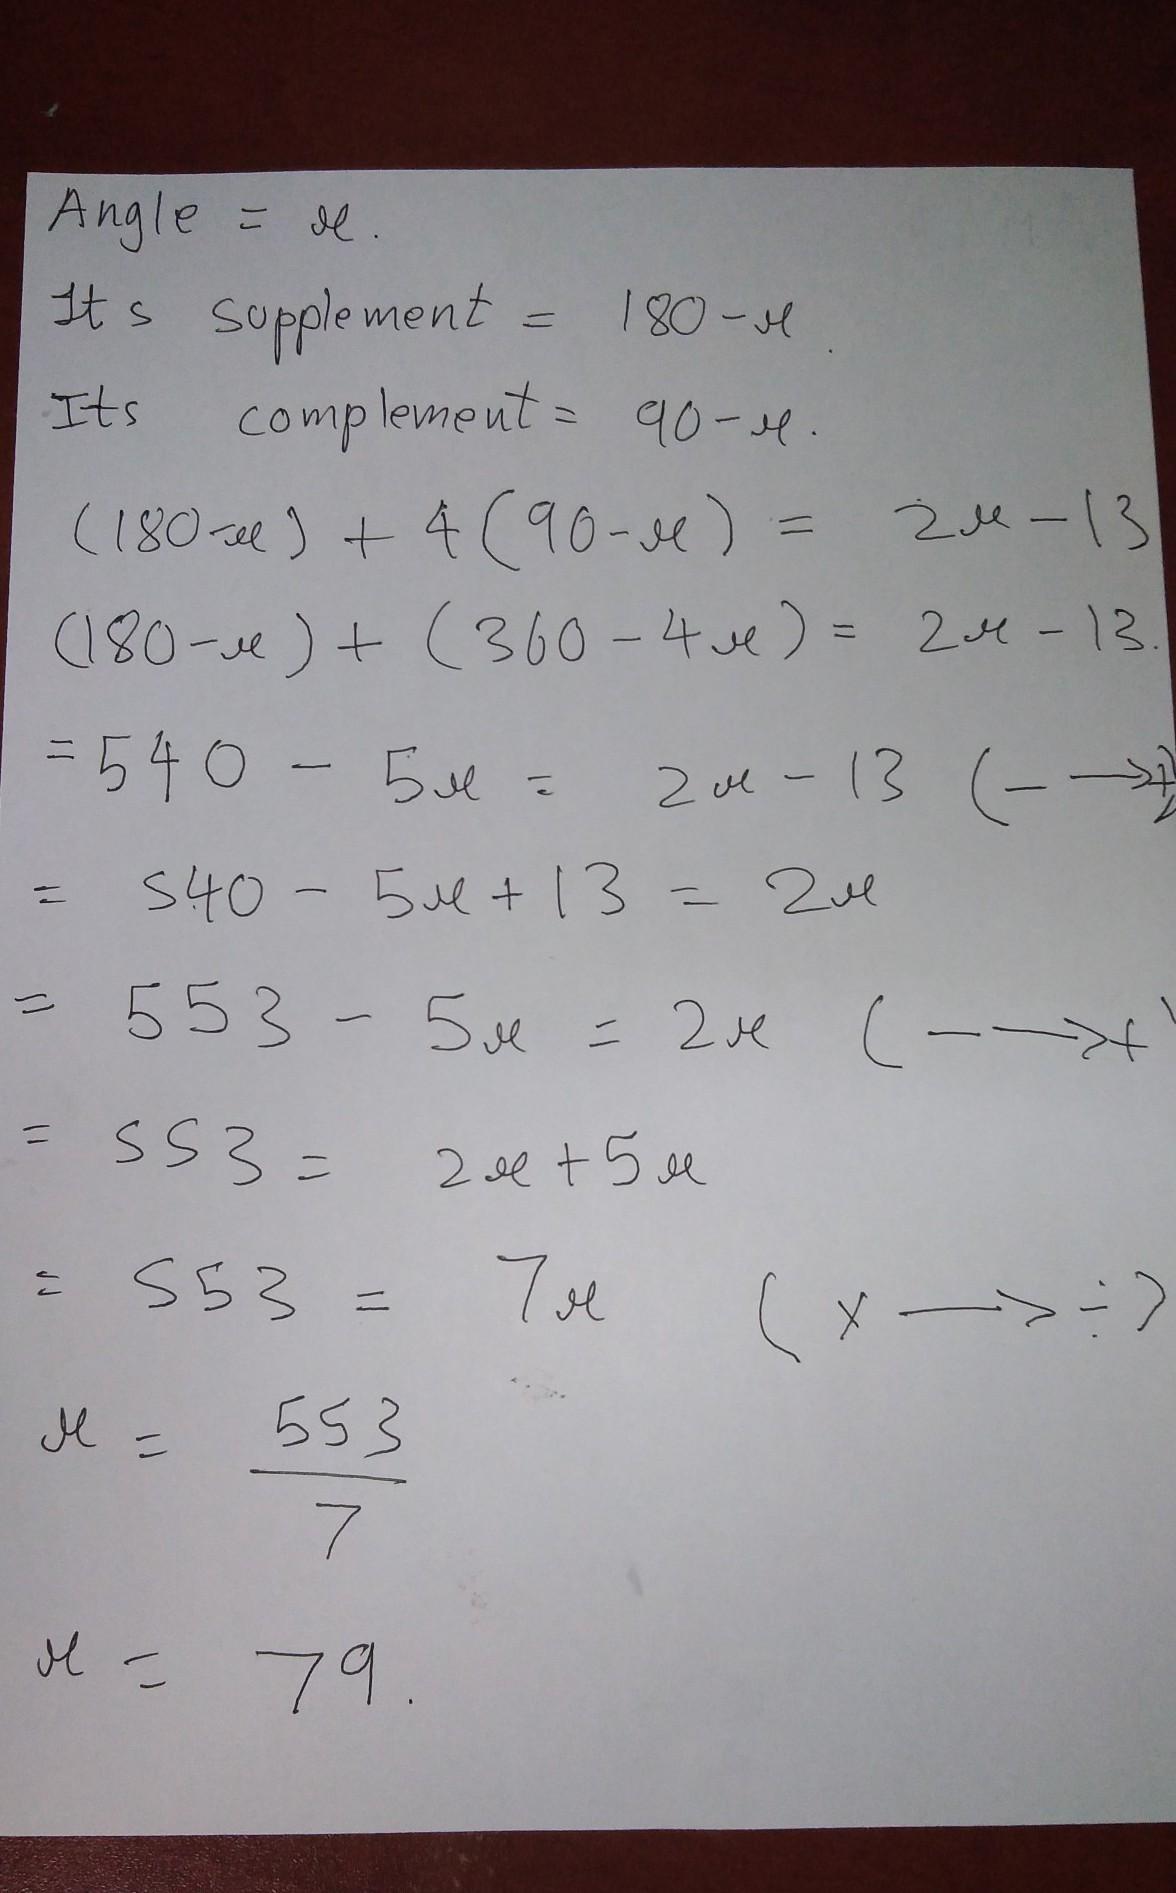 Angle = x.
Its supplement = 180-x.
Its complement = 90-x.
(180-x) + 4(90-x) = 2x-13
(180-x) + (360-4x) = 2x-13.
= 540 - 5x = 2x-13 (- → +)
= 540 - 5x + 13 = 2x
= 553 - 5x = 2x (- → +)
= 553 = 2x+5x
= 553 = 7x (x → ÷)
x = 553
7
x = 79.